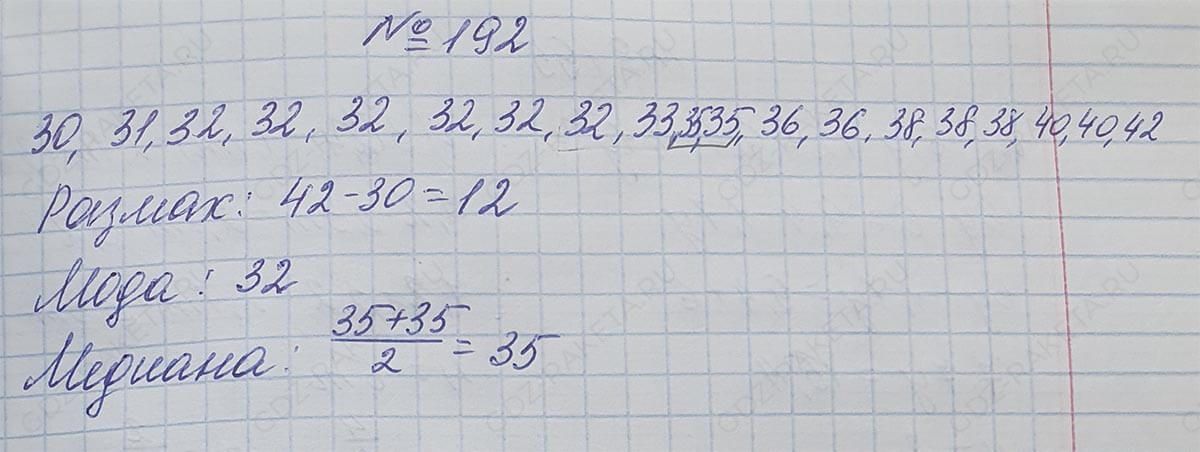 № 192
30, 31, 32, 32, 32, 32, 32, 32, 33, 35, 35, 36, 36, 38, 38, 38, 40, 40, 42
Размах: 42-30=12
Мода: 32
Медиана: 35+35/2 = 35
GDZ-RAKETA.RU